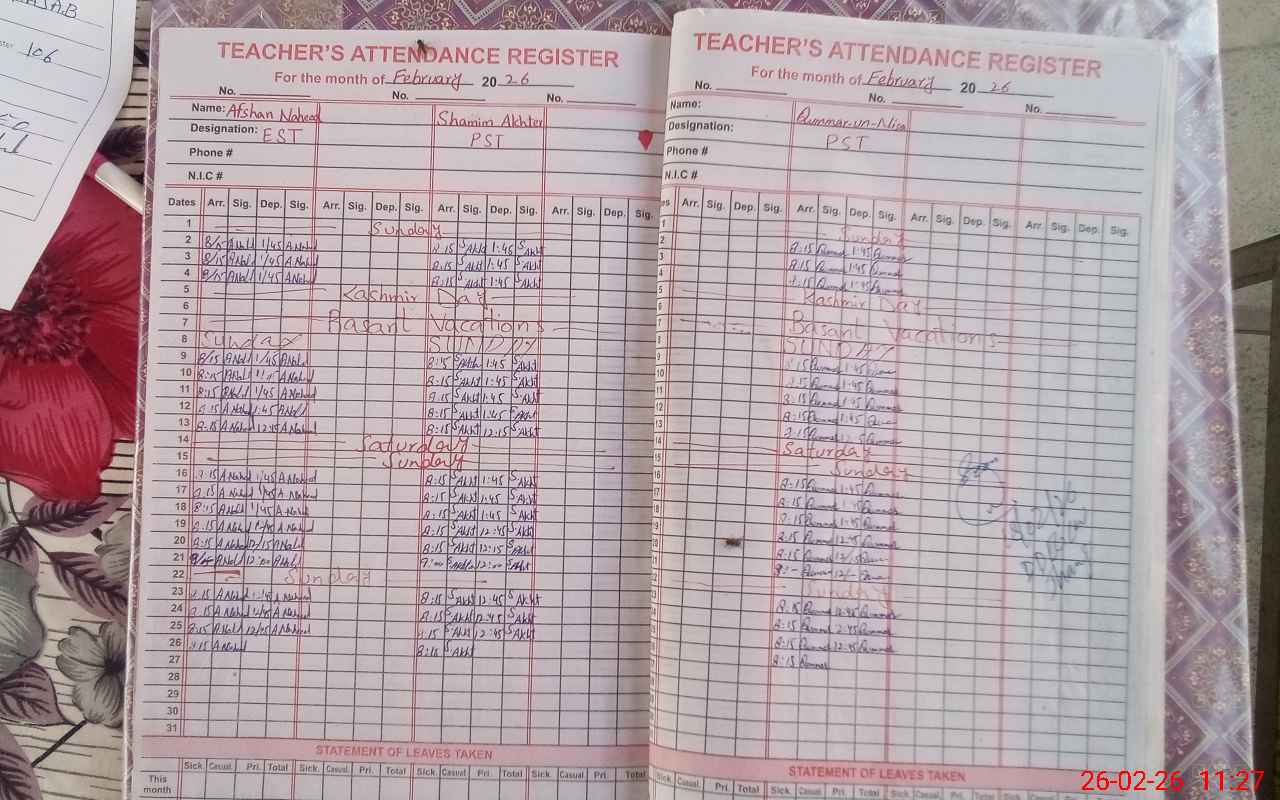 AB
106
TEACHER'S ATTENDANCE REGISTER
For the month of February 2026
No. No. No.
Name: Afshan Naheed Shamim Akhter
Designation: EST PST
Phone #
N.I.C #
Dates Arr. Sig. Dep. Sig. Arr. Sig. Dep. Sig. Arr. Sig. Dep. Sig. Arr. Sig. Dep. Sig.
1 Sunday
2 8/15 ANahd 1/45 ANahed 8:15 SAkht 1:45 SAkht
3 8/15 ANahd 1/45 ANahed 8:15 SAkht 1:45 SAkht
4 8/15 ANahd 1/45 ANahed 8:15 SAkht 1:45 SAkht
5 Kashmir Day
6
7 Basant Vacations
8 Sunday SUNDAY
9 8/15 ANahd 1/45 ANahd 8:15 SAkht 1:45 SAkht
10 8:15 ANahd ANahed 8:15 SAkht 1:45 SAkht
11 8:15 ANahd 1/45 ANahed 8:15 SAkht 1:45 SAkht
12 8:15 ANahd 1:45 ANahd 8:15 SAkht 1:45 SAkht
13 8:15 ANahed 12:15 ANahed 8:15 SAkht 12:15 SAkht
14 Saturday
15 Sunday
16 8:15 ANahed 1/45 ANahed 8:15 SAkht 1:45 SAkht
17 8:15 ANahed 1/45 ANahed 8:15 SAkht 1:45 SAkht
18 8:15 ANahd 1/45 ANahed 8:15 SAkht 1:45 SAkht
19 8:15 ANahed ANahed 8:15 SAkht 12:45 SAkht
20 8:15 ANahed 12/15 ANahed 8:15 SAkht 12:15 SAkht
21 ANahd 12:00 ANahd 9:00 SAkht 12:00 SAkht
22 Sunday
23 8:15 ANahed ANahed 8:15 SAkht 12:45 SAkht
24 8:15 ANahed ANahed 8:15 SAkht 12:45 SAkht
25 8:15 ANahd ANahed 8:15 SAkht 12:45 SAkht
26 8:15 ANahed 8:15 SAkht
27
28
29
30
31
STATEMENT OF LEAVES TAKEN
Sick. Casual. Pri. Total Sick. Casual. Pri. Total Sick. Casual. Pri. Total Sick. Casual. Pri. Total
This month
TEACHER'S ATTENDANCE REGISTER
For the month of February 2026
No. No. No.
Name: Qummar-un-Nisa
Designation: PST
Phone #
N.I.C #
es Arr. Sig. Dep. Sig. Arr. Sig. Dep. Sig. Arr. Sig. Dep. Sig. Arr. Sig. Dep. Sig.
Sunday
8:15 Qummar 1:45 Qummar
8:15 Qummar 1:45 Qummar
8:15 Qummar 1:45 Qummar
Kashmir Day
Basant Vacations
SUNDAY
8:15 Qummar 1:45 Qummar
8:15 Qummar 1:45 Qummar
8:15 Qummar 1:45 Qummar
8:15 Qummar 1:45 Qummar
8:15 Qummar Qummar
Saturday
Sunday
8:15 Qummar 1:45 Qummar
8:15 Qummar 1:45 Qummar
8:15 Qummar 1:45 Qummar
8:15 Qummar 12:45 Qummar
8:15 Qummar 12/15 Qummar
9:- Qummar 12/- Qummar
Sunday
8:15 Qummar 12:45 Qummar
8:15 Qummar 2:45 Qummar
8:15 Qummar 12:45 Qummar
8:15 Qummar
STATEMENT OF LEAVES TAKEN
Sick. Casual. Pri. Total Sick. Casual. Pri. Total Sick. Casual. Pri. Total Sick. Casual. Pri. Total
26-02-26 11:27